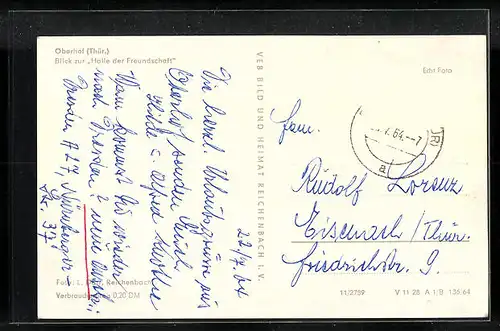 Oberhof (Thür.)
Blick zur „Halle der Freundschaft"
22/7.64
Die herzl. Urlaubsgrüße aus
Oberhof senden Euch
Hilde u. Alfred
Wann kommst Du wieder
nach Dresden? neue
Dresden A 27, Nürnberger
Str. 37
Foto: L. Reichenbach
Verbraucher 0,20 DM
VEB BILD UND HEIMAT REICHENBACH I. V.
Echt Foto
7.64.–7
a
Fam.
Rudolf Lorenz
Eisenach/Thür.
Friedrichstr. 9.
11/2759
V 11 28 A 1/B 135/64